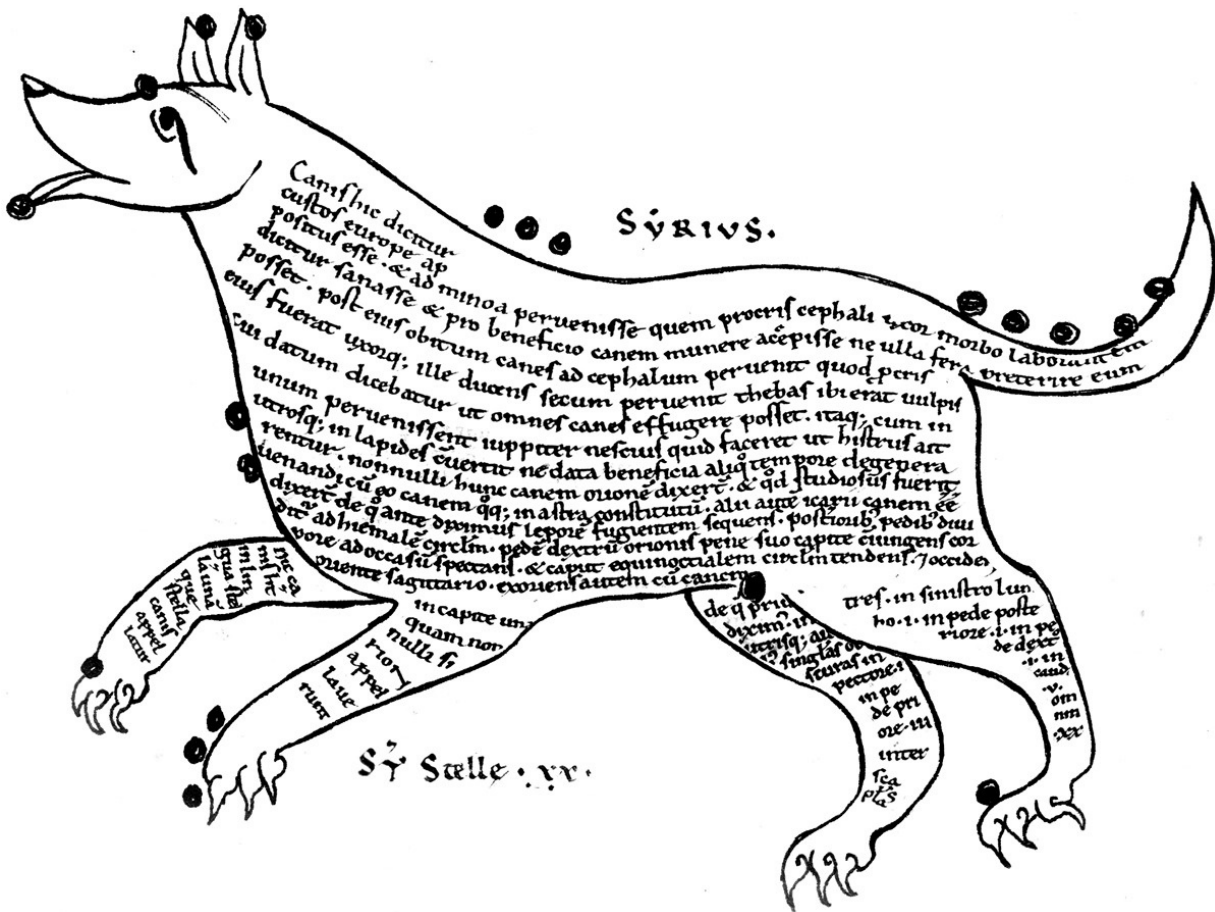 SẎRIVS.
Canis hic dicitur
custos europe ap
positus esse · & ad minoa pervenisse quem procris cephali uxor morbo laborantem
dicitur sanasse & pro beneficio canem munere acepisse ne ulla fera preterire eum
posset · post eius obitum canes ad cephalum pervenit quod pcris
eius fuerat uxorq; ille ducens secum pervenit thebas ibi erat vulpis
cui datum dicebatur ut omnes canes effugere posset · itaq; cum in
unum pervenissent iuppiter nescius quid faceret ut histrus ait
utrosq; in lapides cuertit ne data beneficia aliqo tempore degenera
rentur · nonnulli hunc canem orionē dixerT · & qd studiosus fuerit
uenandi cū eo canem qq; in astra constitutū · alii autē icarii canem ēe
dixerT de q ante diximus leporē fugientem sequens · posteriorib; pedib; divi
dit ad hiemalē circlm · pedē dextrū orionis pene suo capite ciungens cor
pore ad occasū spectans · & caput equinoctialem circlm tendens · 7 occidens
oriente sagittario · exoriens autem cū cancro
hic ca
nis ht
in lin
gua stel
la unā
que
stella
canis
appel
latur
in capite una
quam non
nulli si
rion
appel
lave
runt
de q priu
dixim; in
utrisq; au
singlas ob
scuras in
pectore · i
in pe
de pri
ore · iii
inter
sca
plas
tres · in sinistro lum
bo · i · in pede poste
riore · i · in pe
de dext
· i · in
caud
· v ·
om
nm
· xx
Sẏ Stelle · xx ·